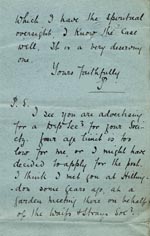 which I have the spiritual
oversight, I know the case
well. It is a very deserving
one.
Yours faithfully
P.S.
I see you are advertising
for a Dep: Sec? for your Soc-
iety your age limit is too
low for me or I might have
decided to apply for the post.
I think I met you at
don some years ago, at a
garden meeting there on behalf
of the Waifs & Strays Soc?